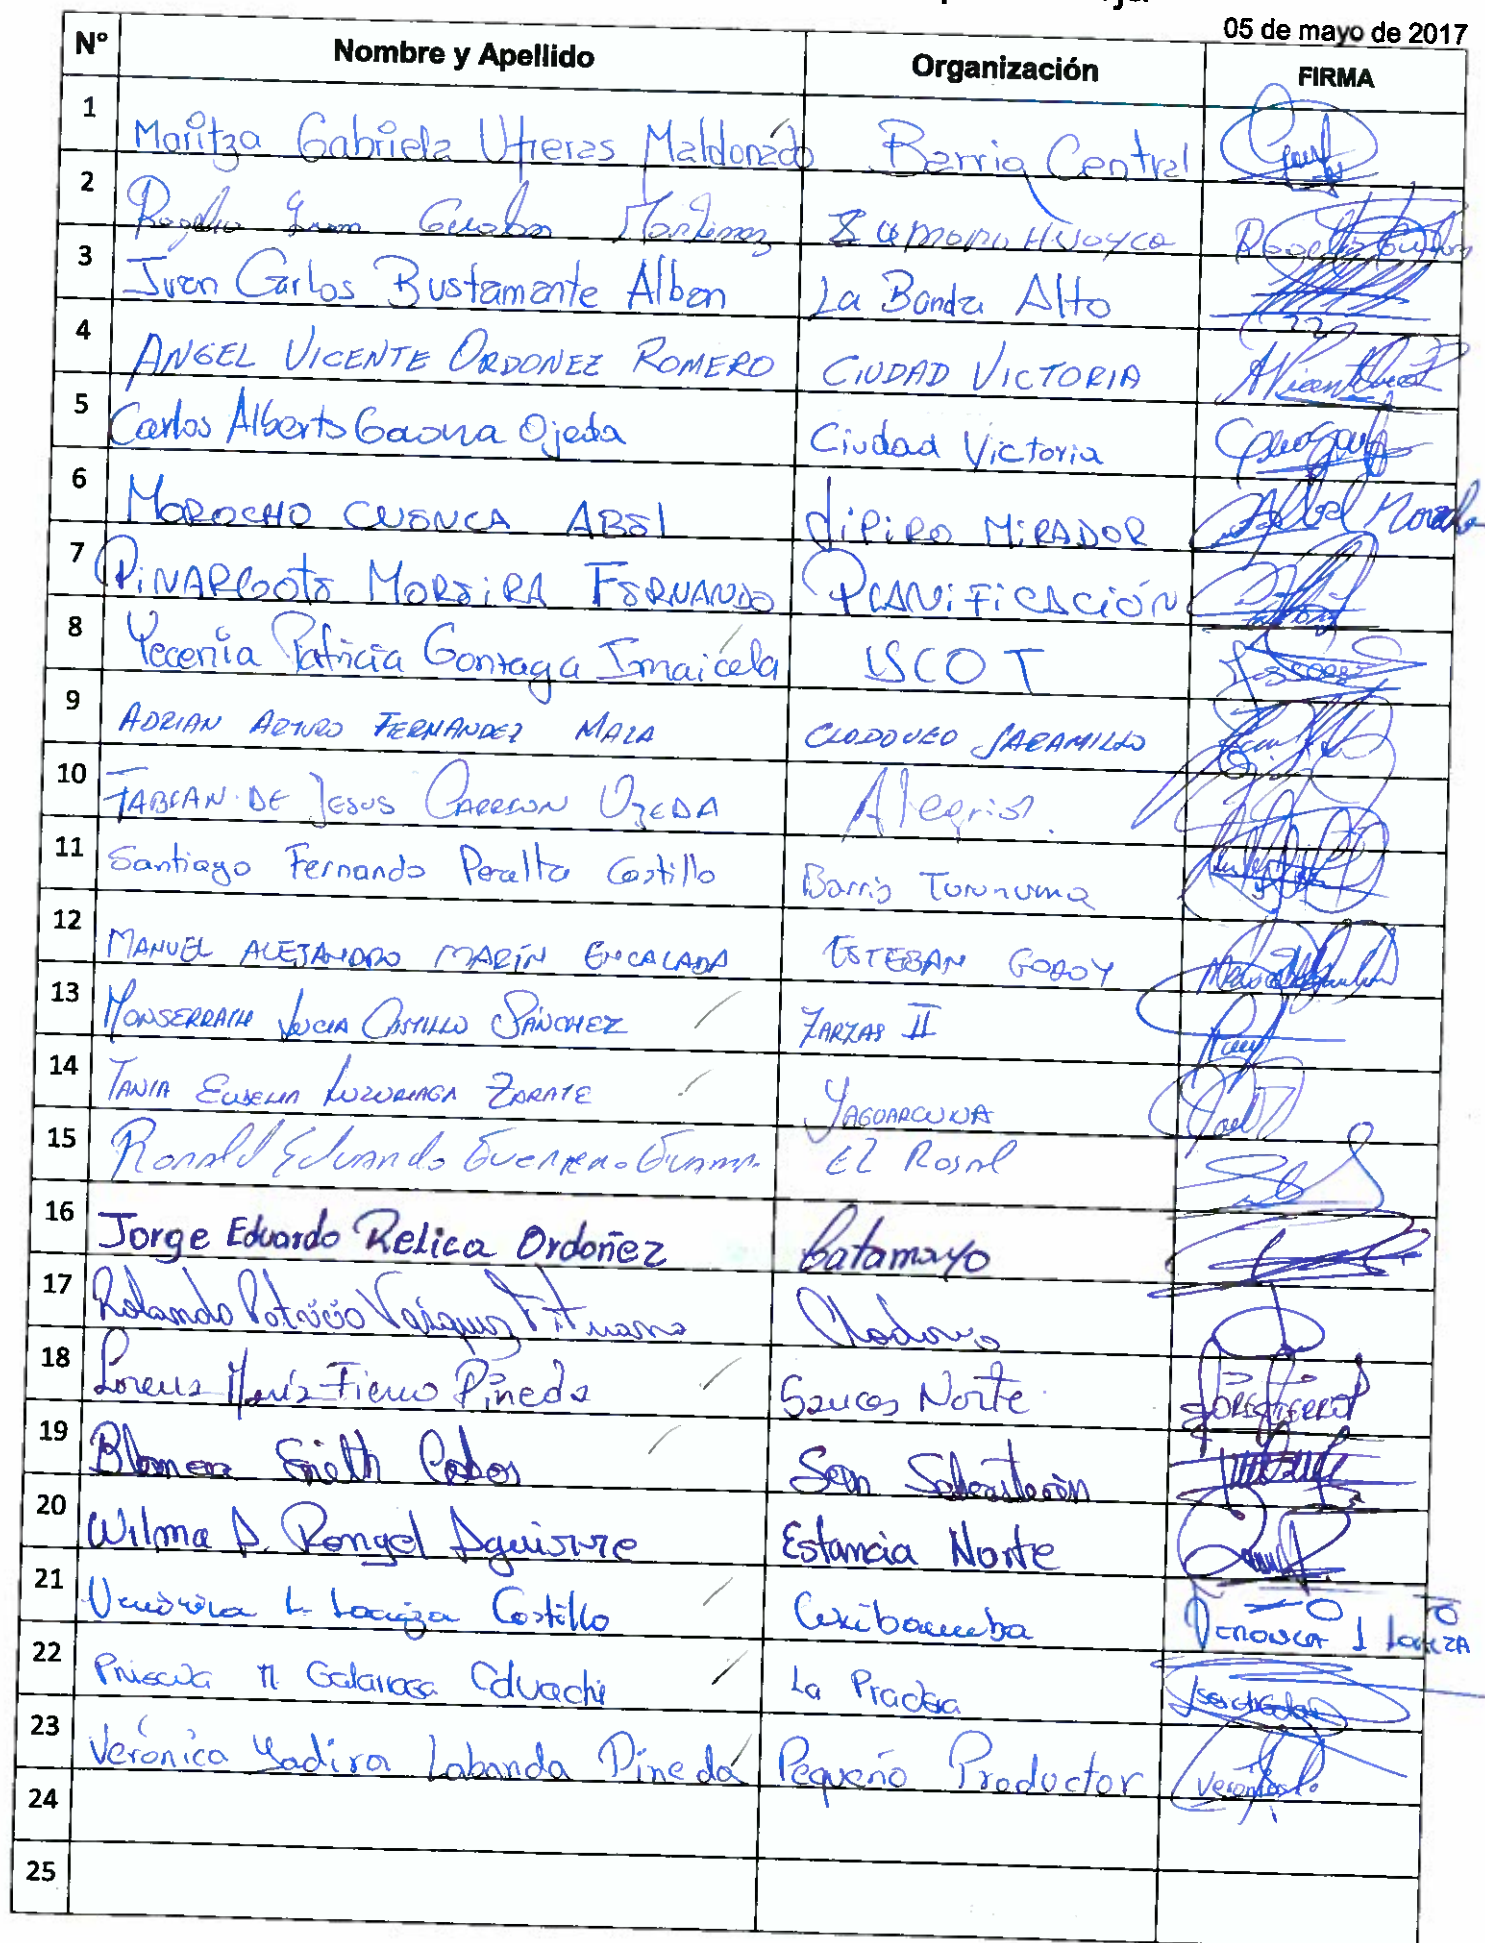 05 de mayo de 2017
Nº Nombre y Apellido Organización FIRMA
1 Maritza Gabriela Utreras Maldonado Barrio Central
2 Rogelio Martinez Zamora Huayco
3 Juan Carlos Bustamante Alban La Banda Alto
4 ANGEL VICENTE ORDONEZ ROMERO CIUDAD VICTORIA
5 Carlos Alberto Gaona Ojeda Ciudad Victoria
6 MOROCHO CUENCA ABEL JIPIRO MIRADOR Abel
7 PINARGOTE MOREIRA FERNANDO PLANIFICACIÓN
8 Yecenia Patricia Gonzaga Imaicela
9 ADRIAN ARTURO FERNANDEZ MAZA CLODOVEO JARAMILLO
10 FABIAN DE JESUS CARRION OJEDA Alegria
11 Santiago Fernando Peralta Castillo Barrio Tununuma
12 MANUEL ALEJANDRO MARÍN ENCALADA ESTEBAN GODOY
13 MONSERRATH LUCIA CASTILLO SÁNCHEZ ZARZAS II
14 TANIA EUGENIA LUZURIAGA ZARATE YAGUARCUNA
15 Ronald Eduardo Guerrero El Rosal
16 Jorge Eduardo Relica Ordoñez Catamayo
17 Rolando Patricio Vasquez Clodoveo
18 Lorena María Fierro Pineda Sauces Norte
19 Cobos San Sebastián
20 Wilma A. Rongel Aguirre Estancia Norte
21 Verónica L. Loaiza Castillo Cuxibamba VERONICA L LOAIZA
22 Priscila M Galarraga La Pradera
23 Verónica Yadira Labanda Pineda Pequeño Productor
24
25